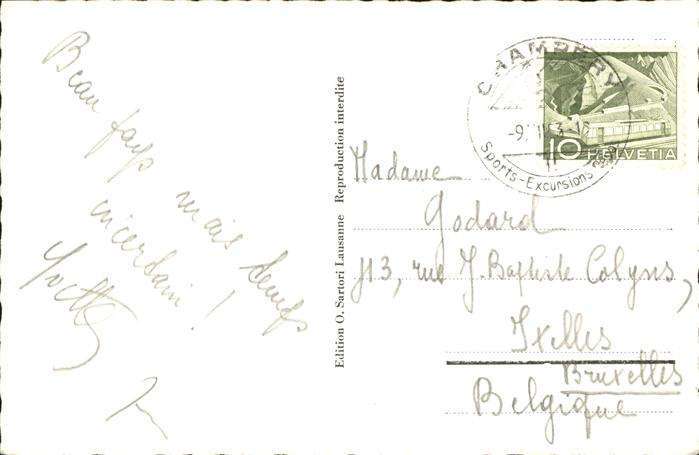 Beau pays
mais temps
incertain !
Yvette
Edition O. Sartori Lausanne Reproduction interdite
CHAMPÉRY
Sports-Excursions
10 HELVETIA
Madame
Godard
113, rue J. Baptiste Colyns,
Ixelles
Bruxelles
Belgique